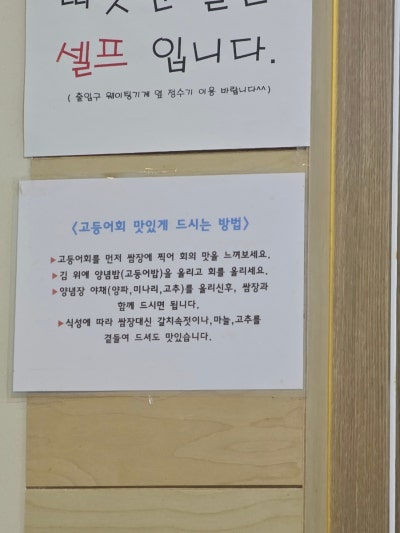 따뜻한 물은
셀프 입니다.
( 출입구 웨이팅기계 옆 정수기 이용 바랍니다^^)
<고등어회 맛있게 드시는 방법>
▶고등어회를 먼저 쌈장에 찍어 회의 맛을 느껴보세요.
▶김 위에 양념밥(고등어밥)을 올리고 회를 올리세요.
▶양념장 야채(양파,미나리,고추)를 올리신후, 쌈장과
함께 드시면 됩니다.
▶식성에 따라 쌈장대신 갈치속젓이나,마늘,고추를
곁들여 드셔도 맛있습니다.